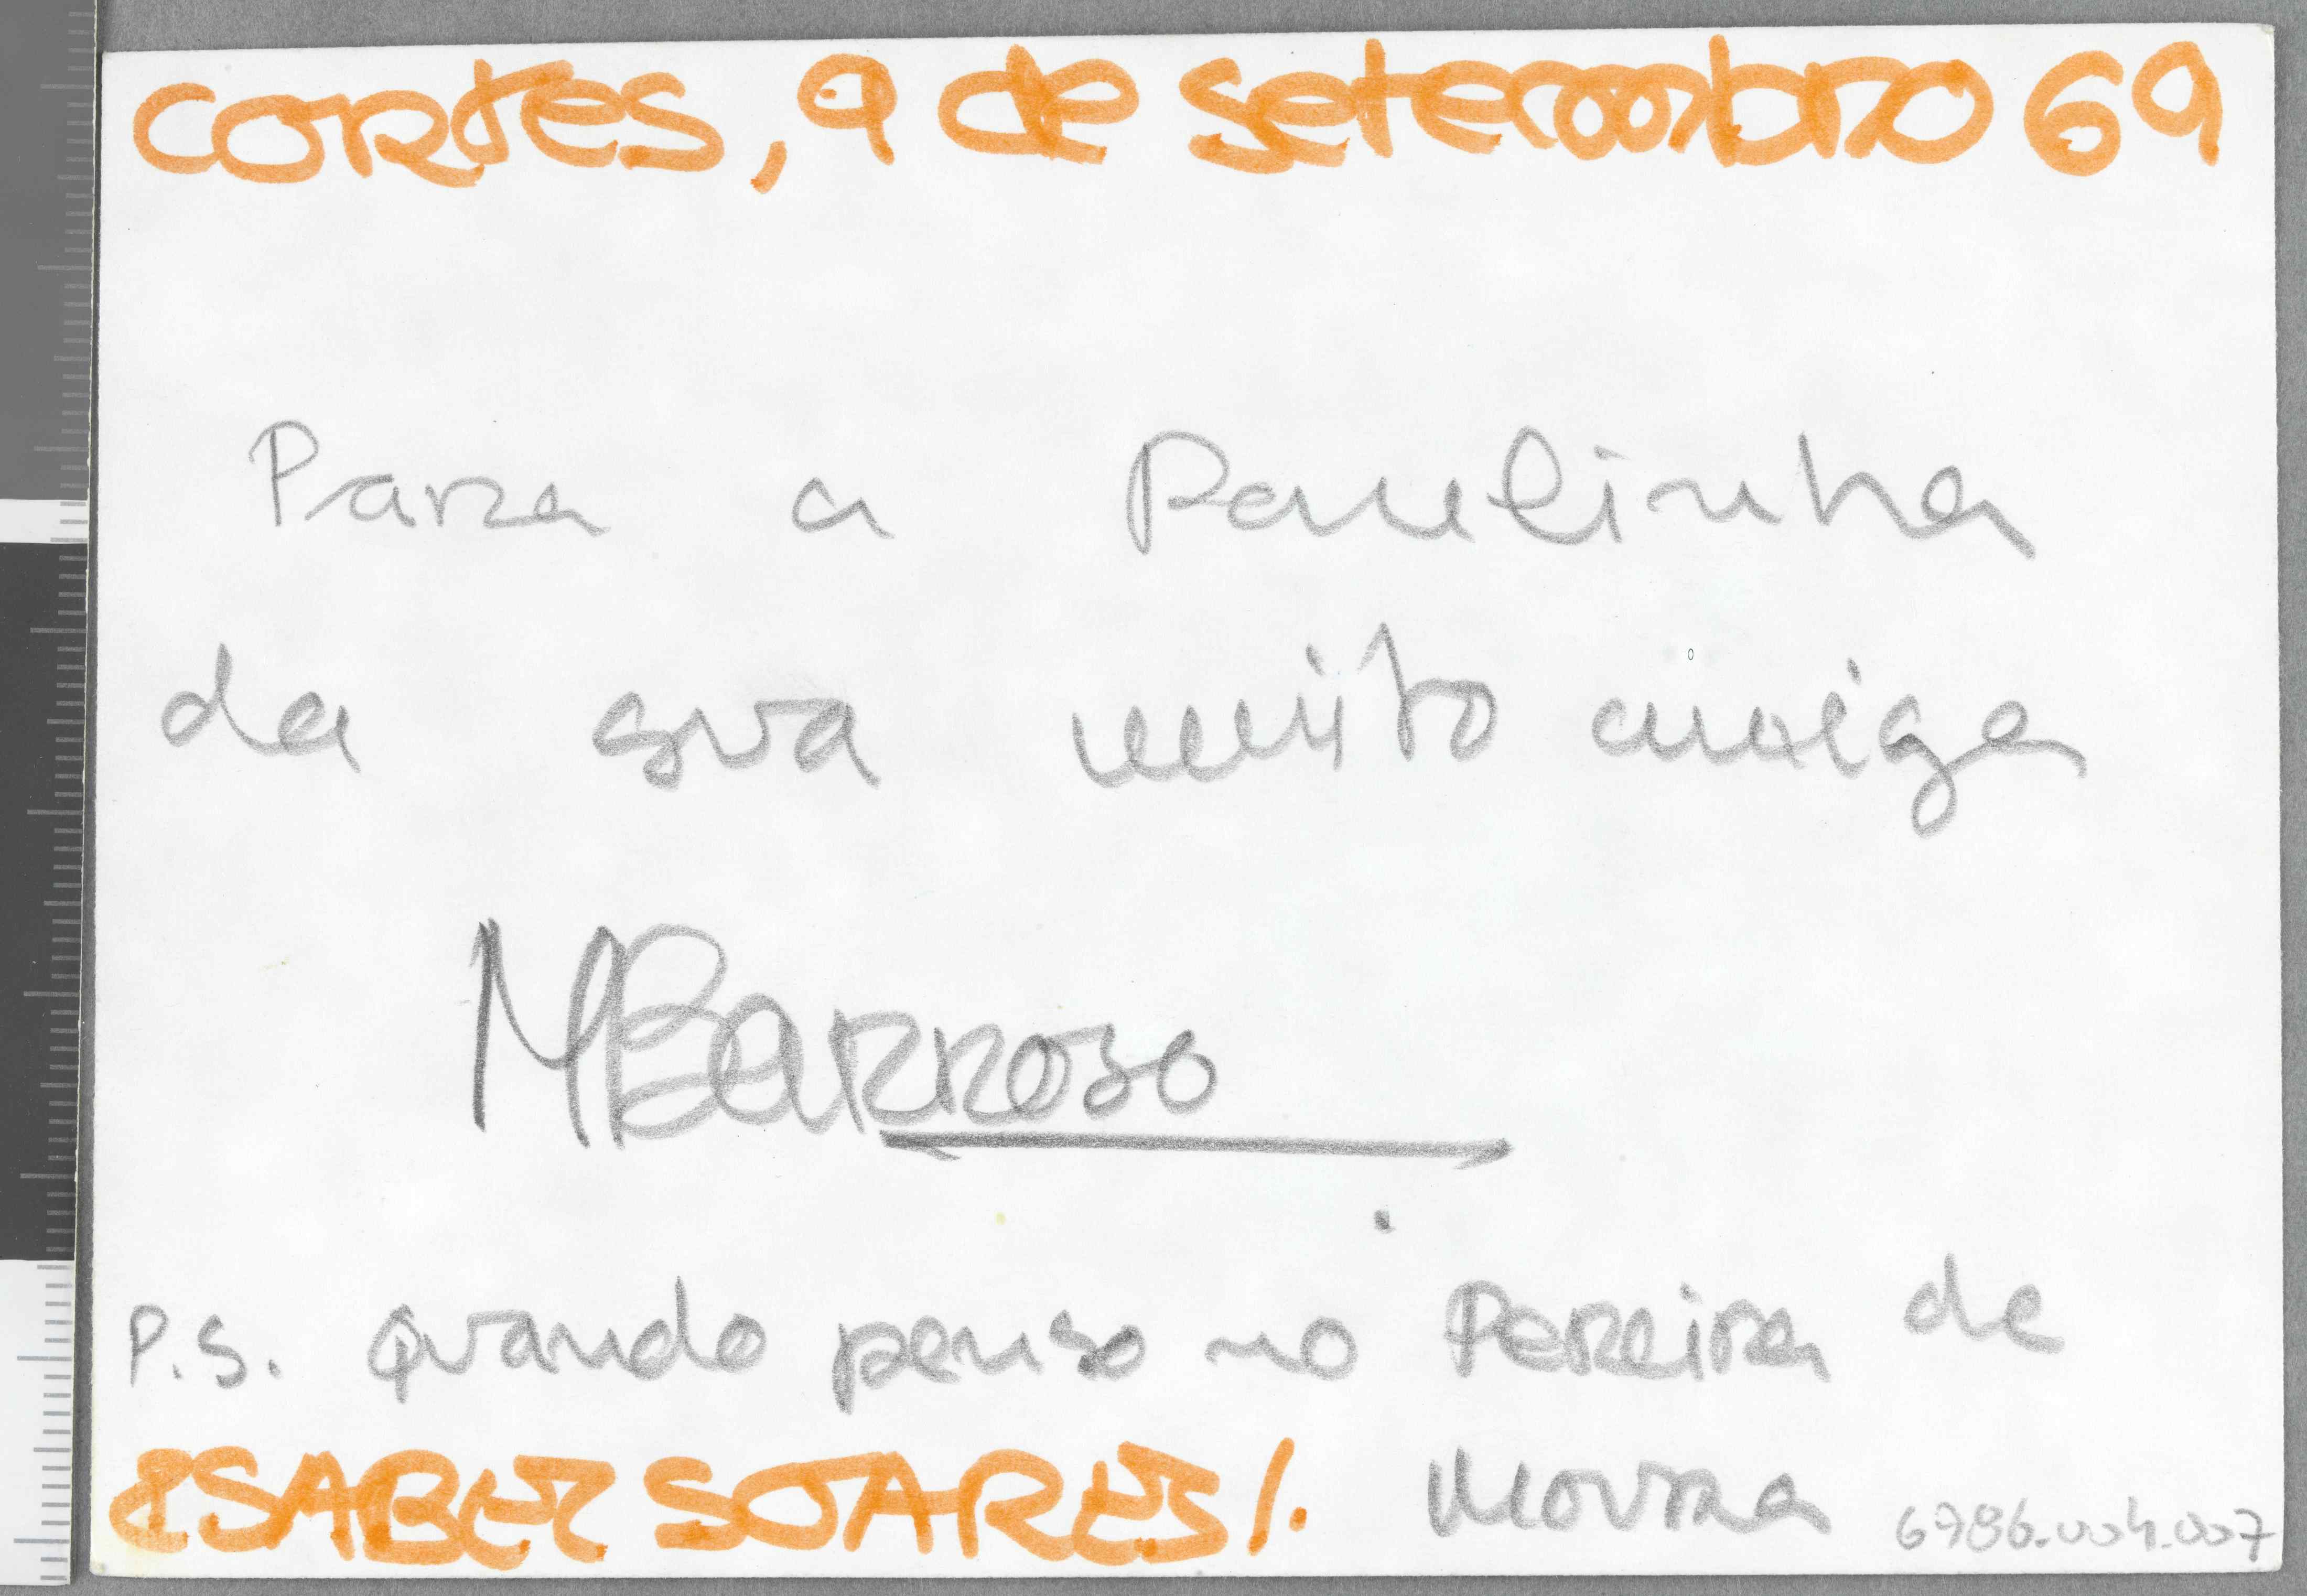 CORTES, 9 de setembro 69
Para a Paulinha
da sua muito amiga
MBarroso
P.S. quando penso no Pereira de
Moura
ISABEL SOARES!
6786.004.007